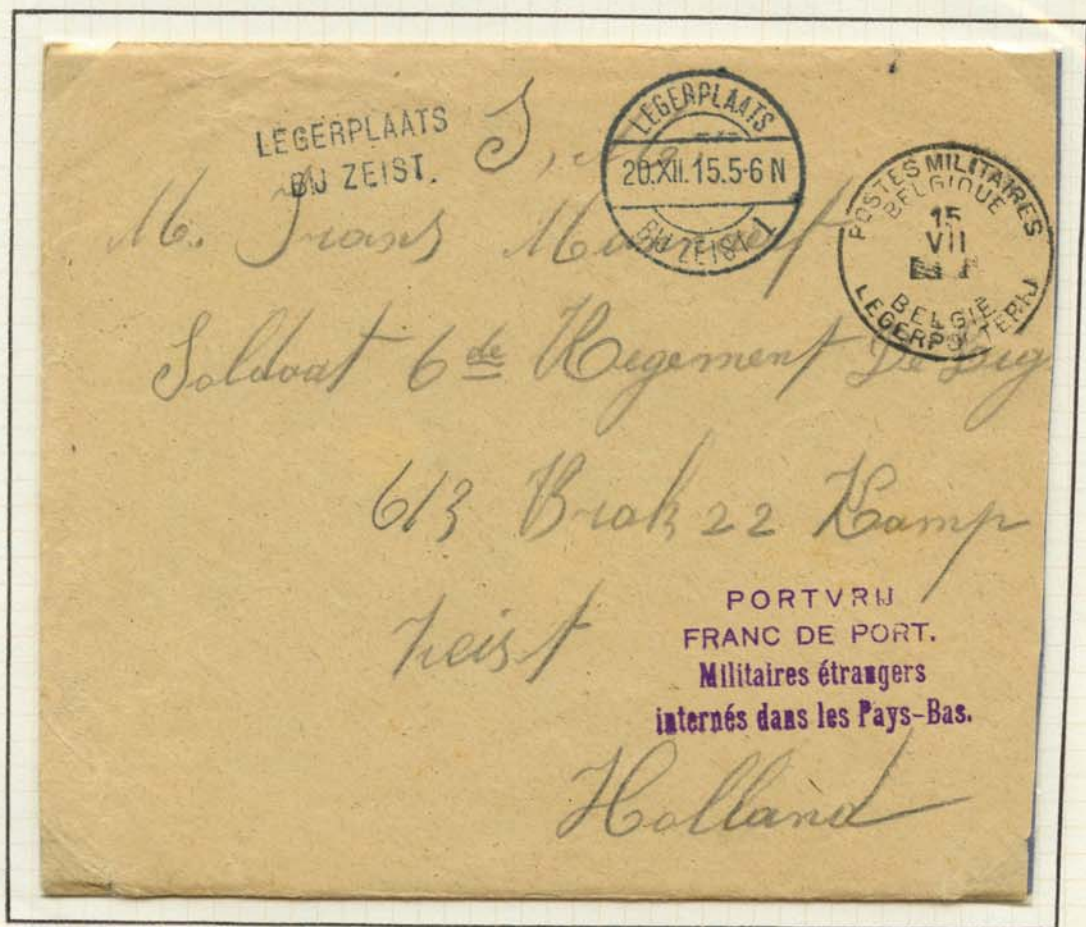 LEGERPLAATS
BIJ ZEIST.
LEGERPLAATS
20.XII.15.5-6 N
BIJ ZEIST 1
POSTES MILITAIRES
BELGIQUE
15
VII
BELGIE
LEGERPOSTERIJ
M. Frans
Soldaat 6de Regement De Lig
613 Brak 22 Kamp
Zeist
PORTVRIJ
FRANC DE PORT.
Militaires étrangers
internés dans les Pays-Bas.
Holland